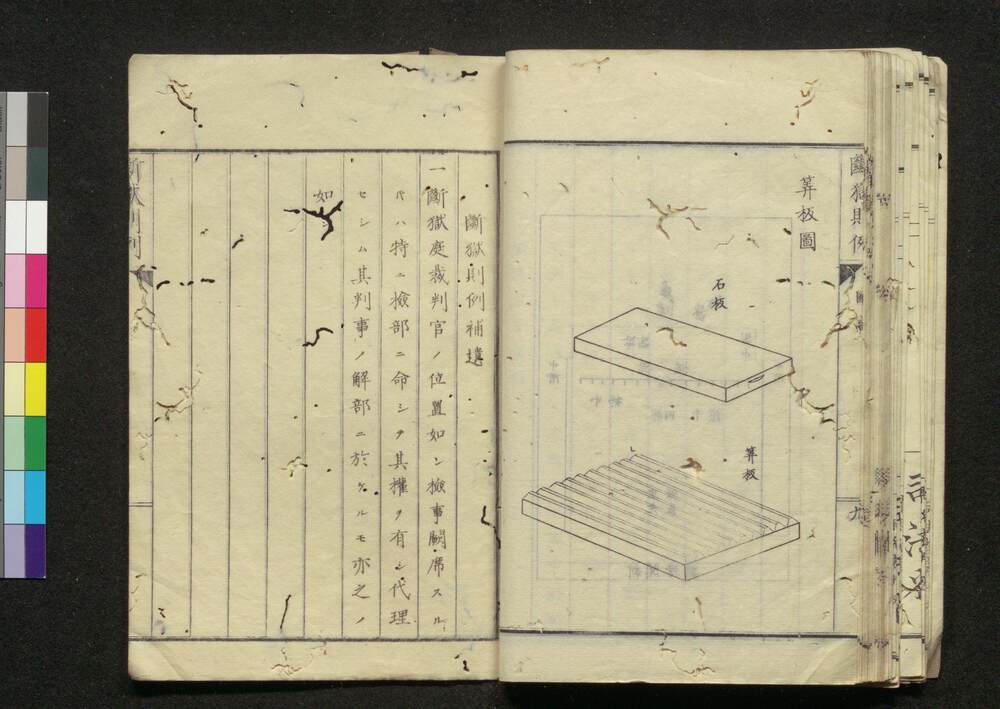 斷獄則例
算板圖
石板
算板
九
斷獄則例補遺
一斷獄庭裁判官ノ位置如シ檢事闕席スル
片ハ特ニ檢部ニ命シヲ其權ヲ有シ代理
セシム其判事ノ解部ニ於ケルモ亦之ノ
如シ
斷獄則例